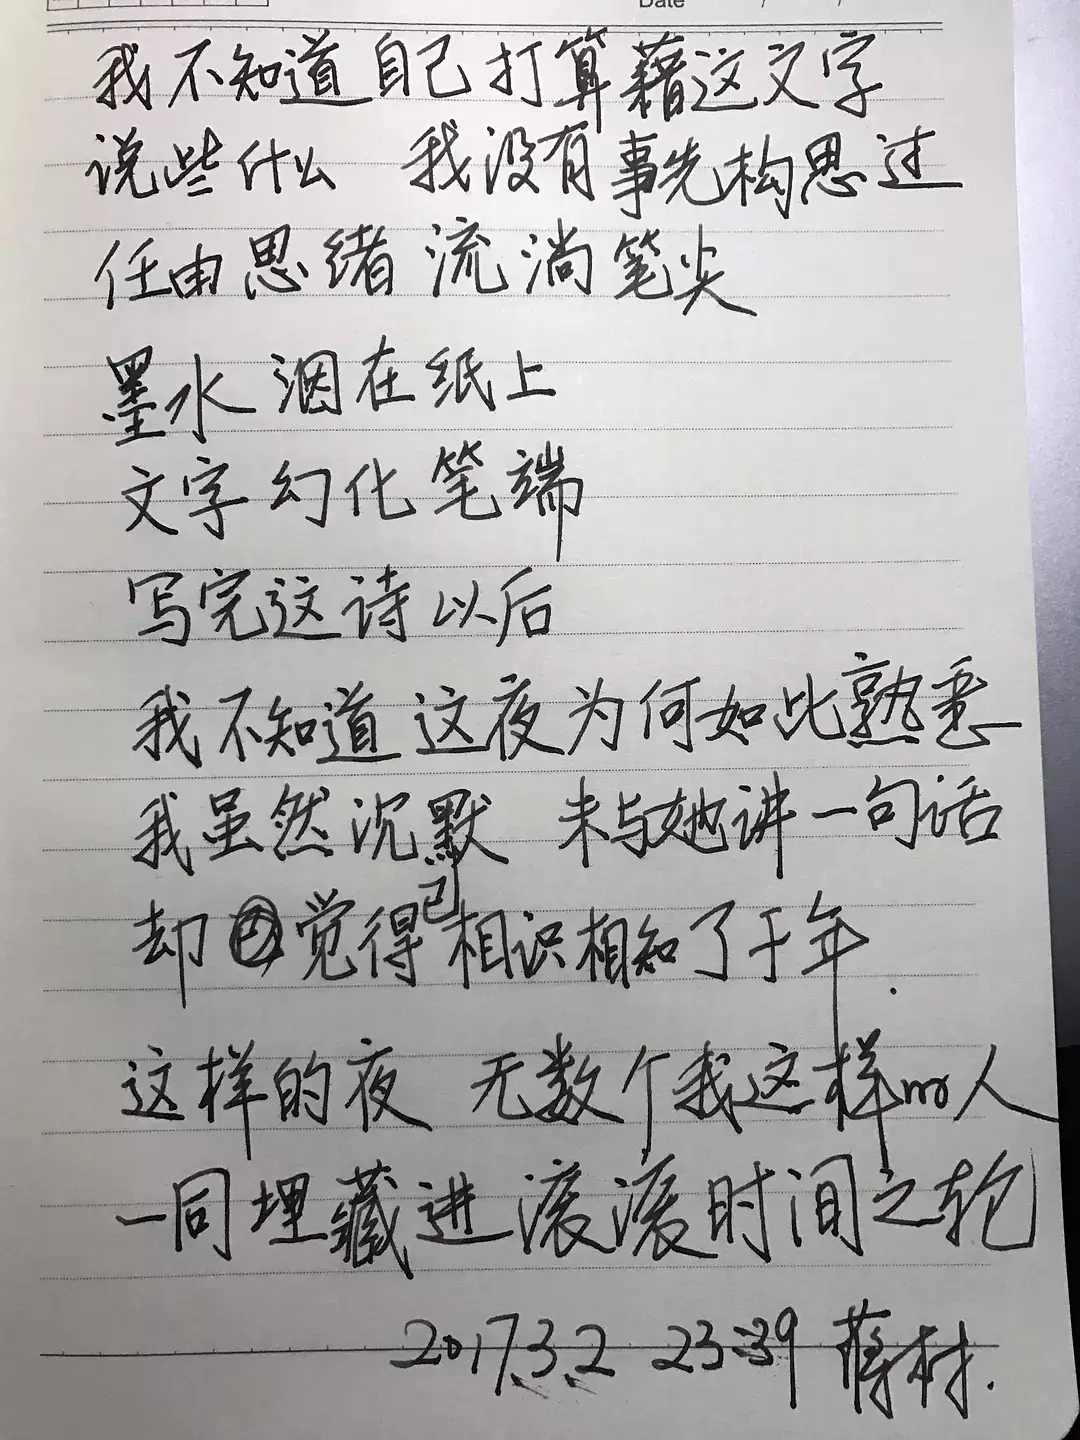 Date / /
我不知道自己打算藉这文字
说些什么 我没有事先构思过
任由思绪流淌笔尖
墨水洇在纸上
文字幻化笔端
写完这诗以后
我不知道这夜为何如此熟悉
我虽然沉默 未与她讲一句话
却觉得已相识相知了千年.
这样的夜 无数个我这样的人
一同埋藏进滚滚时间之轮
2017.3.2 23:39